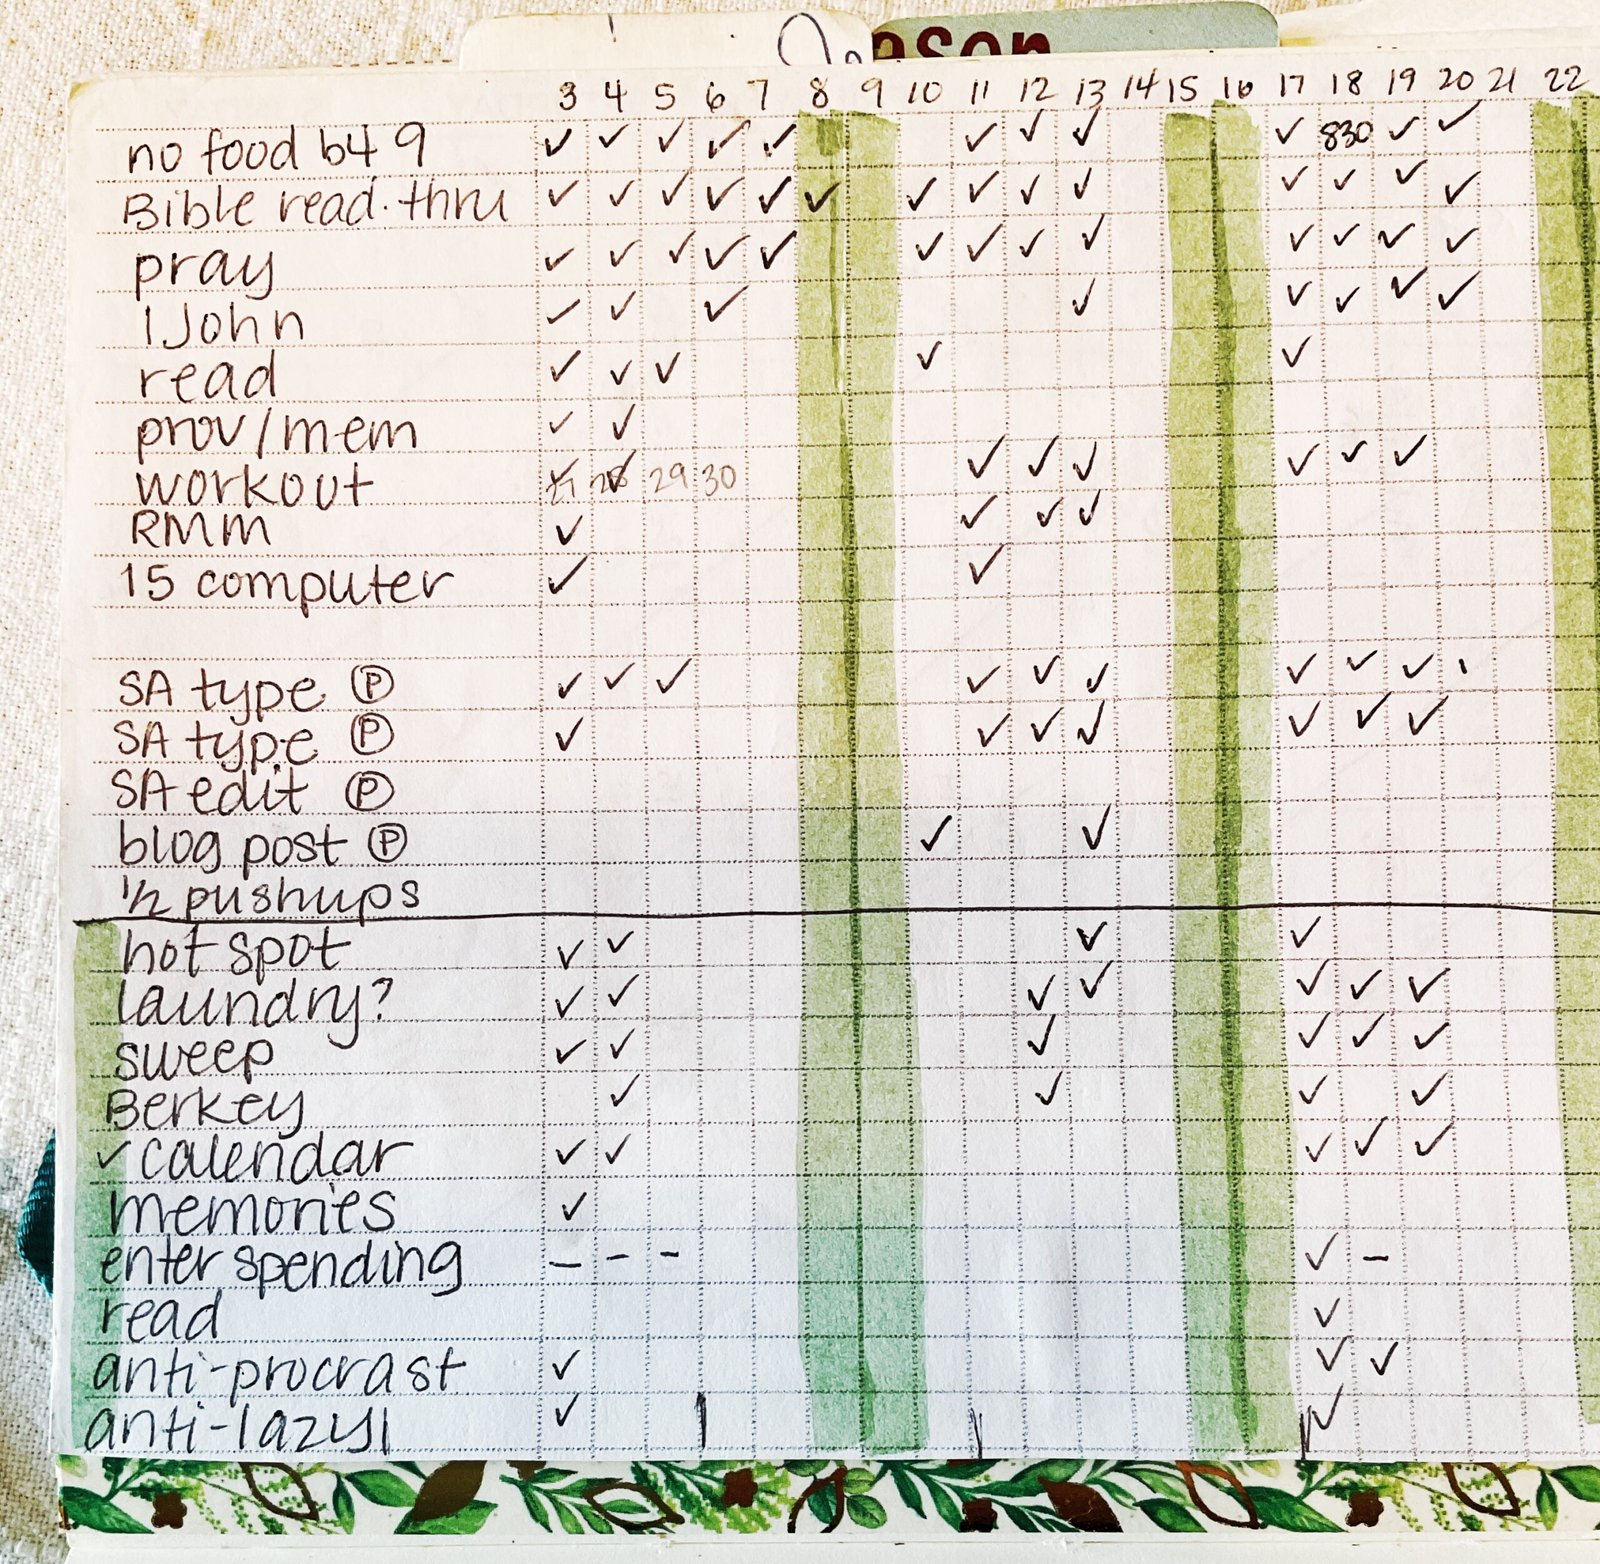 eason
3 4 5 6 7 8 9 10 11 12 13 14 15 16 17 18 19 20 21 22
no food b4 9 ✓ ✓ ✓ ✓ ✓ ✓ ✓ ✓ ✓ 830 ✓ ✓
Bible read.thru ✓ ✓ ✓ ✓ ✓ ✓ ✓ ✓ ✓ ✓ ✓ ✓ ✓ ✓
pray ✓ ✓ ✓ ✓ ✓ ✓ ✓ ✓ ✓ ✓ ✓ ✓ ✓
1 John ✓ ✓ ✓ ✓ ✓ ✓ ✓ ✓
read ✓ ✓ ✓ ✓ ✓
prov/mem ✓ ✓
workout 27 28 29 30 ✓ ✓ ✓ ✓ ✓ ✓
RMM ✓ ✓ ✓ ✓
15 computer ✓ ✓
SA type Ⓟ ✓ ✓ ✓ ✓ ✓ ✓ ✓ ✓ ✓
SA type Ⓟ ✓ ✓ ✓ ✓ ✓ ✓ ✓
SA edit Ⓟ
blog post Ⓟ ✓ ✓
1/2 pushups
hot spot ✓ ✓ ✓ ✓
laundry? ✓ ✓ ✓ ✓ ✓ ✓ ✓
sweep ✓ ✓ ✓ ✓ ✓ ✓
Berkey ✓ ✓ ✓ ✓
✓ calendar ✓ ✓ ✓ ✓ ✓
memories ✓
enter spending – – – ✓ –
read ✓
anti-procrast ✓ ✓ ✓
anti-lazy ✓ ✓